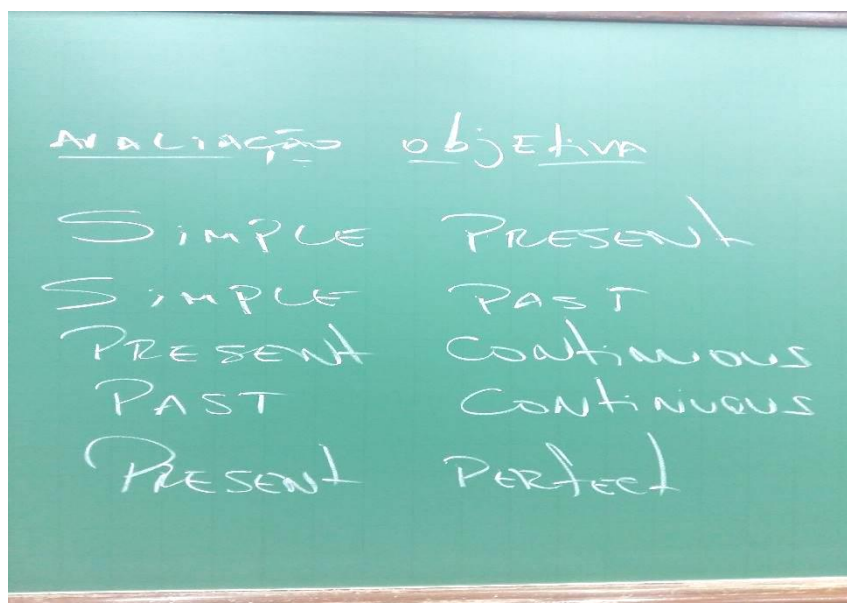 AVALIAÇÃO ObjEtivA
SiMPLE PRESENt
SiMPLE PAST
PRESENt CONtiNUOUS
PAST CONtiNUOUS
PRESENt PERfEct